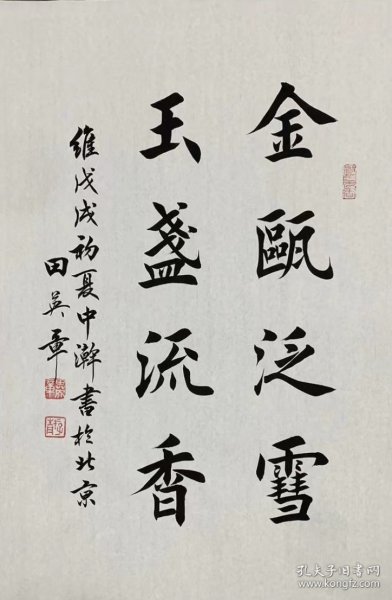 金甌泛雪
玉盞流香
維戊戌初夏中澣書於北京
田英章
孔夫子旧书网
www.kongfz.com